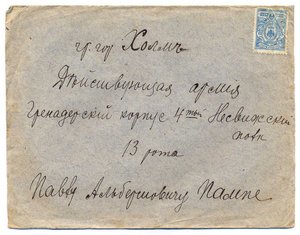 гр. гор Холмъ
Дѣйствующая армія
Гренадерскій корпусъ 4тый Несвижскій
полк
13 рота
Павлу Альбертовичу Пампе